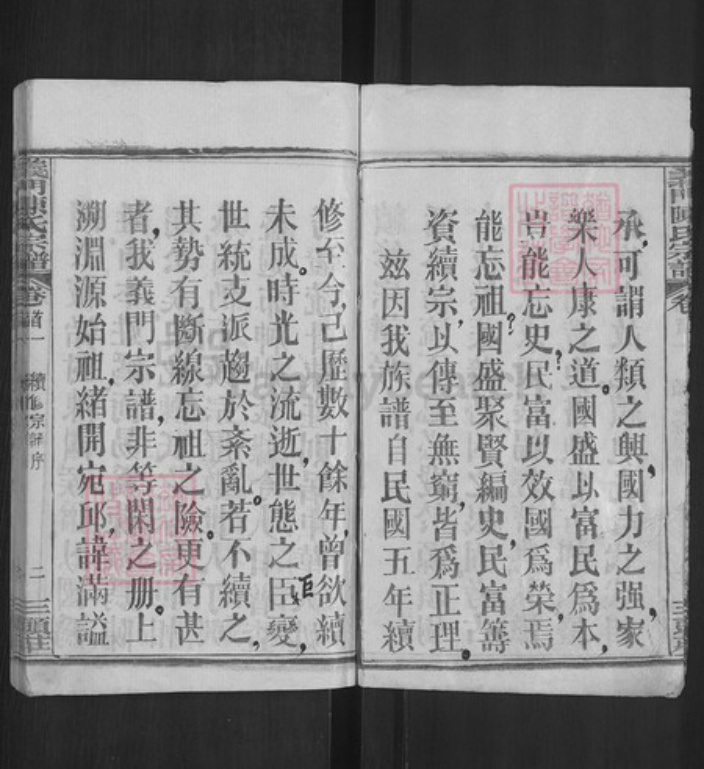 承，可謂人類之興，國力之强，家
樂人康之道。國盛以富民爲本，
豈能忘史？民富以效國爲榮，焉
能忘祖？國盛聚賢編史，民富籌
資續宗，以傳至無窮，皆爲正理。
兹因我族譜自民國五年續
修至今，已歷數十餘年，曾欲續
未成。時光之流逝，世態之臣變，
巨
世統支派趨於紊亂。若不續之，
其勢有斷線忘祖之險。更有甚
者，我義門宗譜，非等閑之册。上
溯淵源始祖，緒開宛邱，諱滿謚
義門陳氏宗譜
卷首一
續修宗譜序
二
三頭莊
義門陳氏宗譜
卷